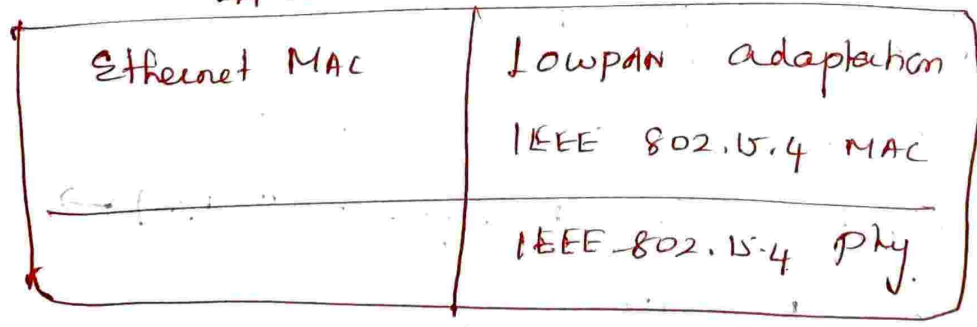 Ethernet MAC
Lowpan adaptation
IEEE 802.15.4 MAC
IEEE 802.15.4 Phy.